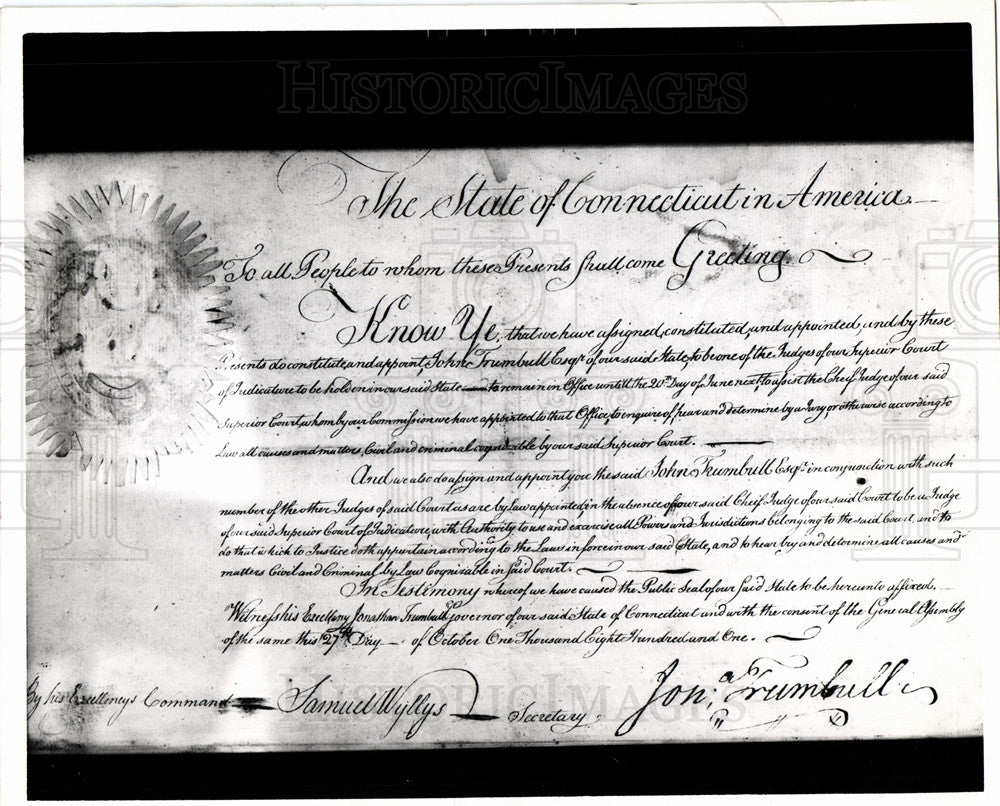 The State of Connecticut in America
To all People to whom these Presents shall come Greeting.
Know Ye, that we have assigned, constituted, and appointed, and by these
Presents do constitute and appoint John Trumbull Esqr. of our said State, to be one of the Judges of our Superior Court
of Judicature to be holden in our said State — to remain in Office until the 20th Day of June next, to assist the Cheif Judge of our said
Superior Court, whom by our Commission we have appointed to that Office, to enquire of, hear and determine by a Jury or otherwise according to
Law all causes and matters, Civil and criminal cognizable by our said Superior Court.
And we also do assign and appoint you the said John Trumbull Esqr. in conjunction with such
number of the other Judges of said Court as are by Law appointed in the absence of our said Cheif Judge of our said Court to be a Judge
of our said Superior Court of Judicature, with Authority to use and exercise all Powers and Jurisdictions belonging to the said Court, and to
do that which to Justice doth appertain according to the Laws in force in our said State, and to hear, try and determine all causes and
matters Civil and Criminal by Law Cognizable in said Court.
In Testimony whereof we have caused the Public Seal of our said State to be hereunto affixed.
Witness his Excellency Jonathan Trumbull Governor of our said State of Connecticut and with the consent of the General Assembly
of the same this 27th Day — of October One Thousand Eight Hundred and One.
By his Excellencys Command
Samuel Wyllys Secretary
Jon.a Trumbull
HISTORICIMAGES
HISTORICIMAGES